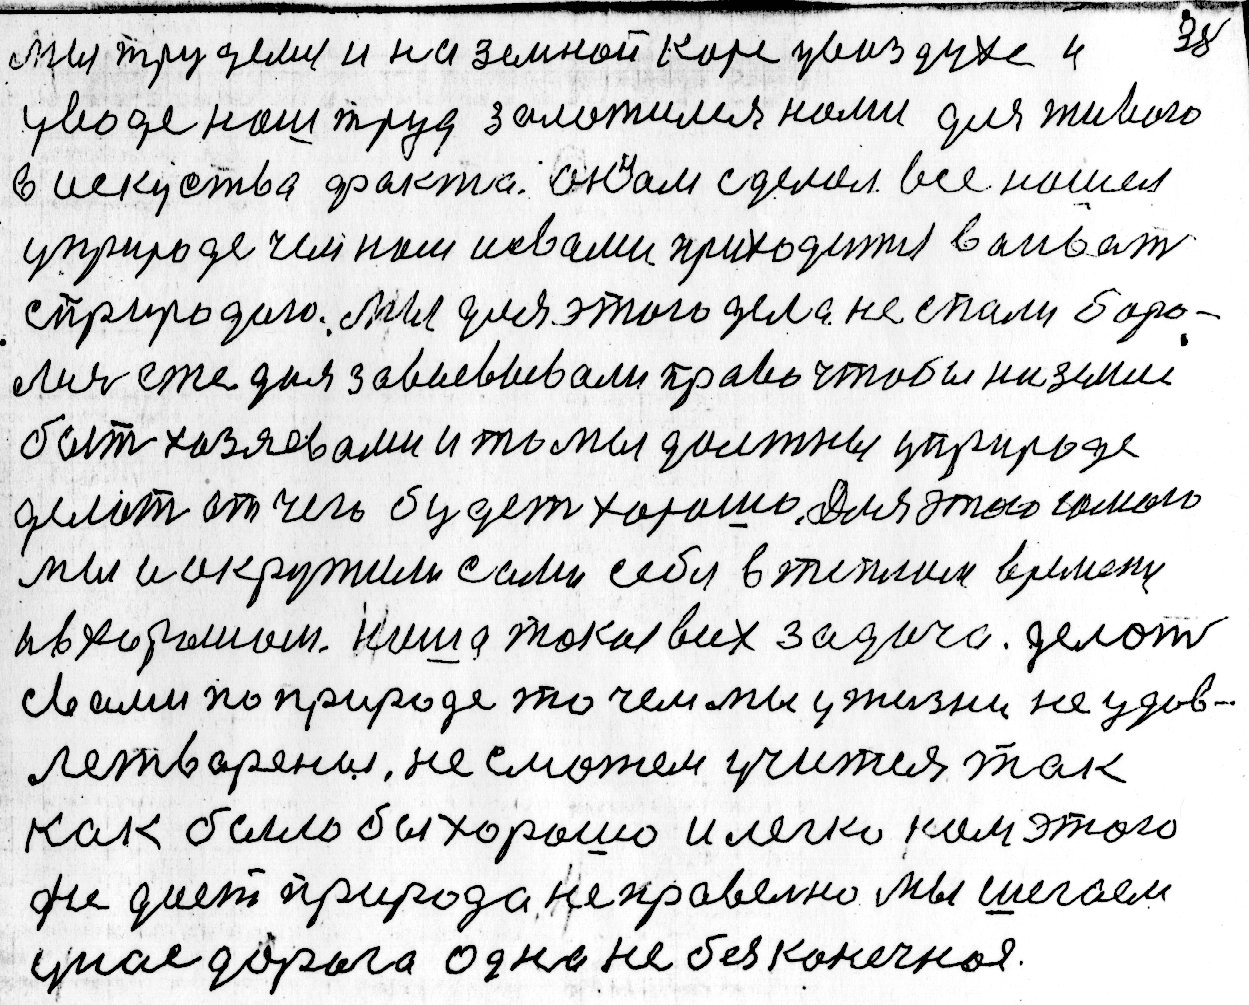 38
мы трудели и на земной коре увоздухе и
уводе наш труд заложился нами для живого
в искуства факта. он нам сделал все нашел
уприроде чем нам исвами приходится воиват
сприродою. Мы для этого дела не спали боро-
лися сже для завиевывали право чтобы на земле
быт хозяевами и то мы должны уприроде
делат от чего будет хорошо. Для этого самого
мы и окружили сами себя в типлим времени
ивхорошом. Наша такая вих задача. делат
свами по природе то чем мы ужизни не удов-
летварены, не сможем учится так
как было бы хорошо и легко нам этого
не дает природа, неправелно мы шегаем
унас дорога одна не безконечноя.